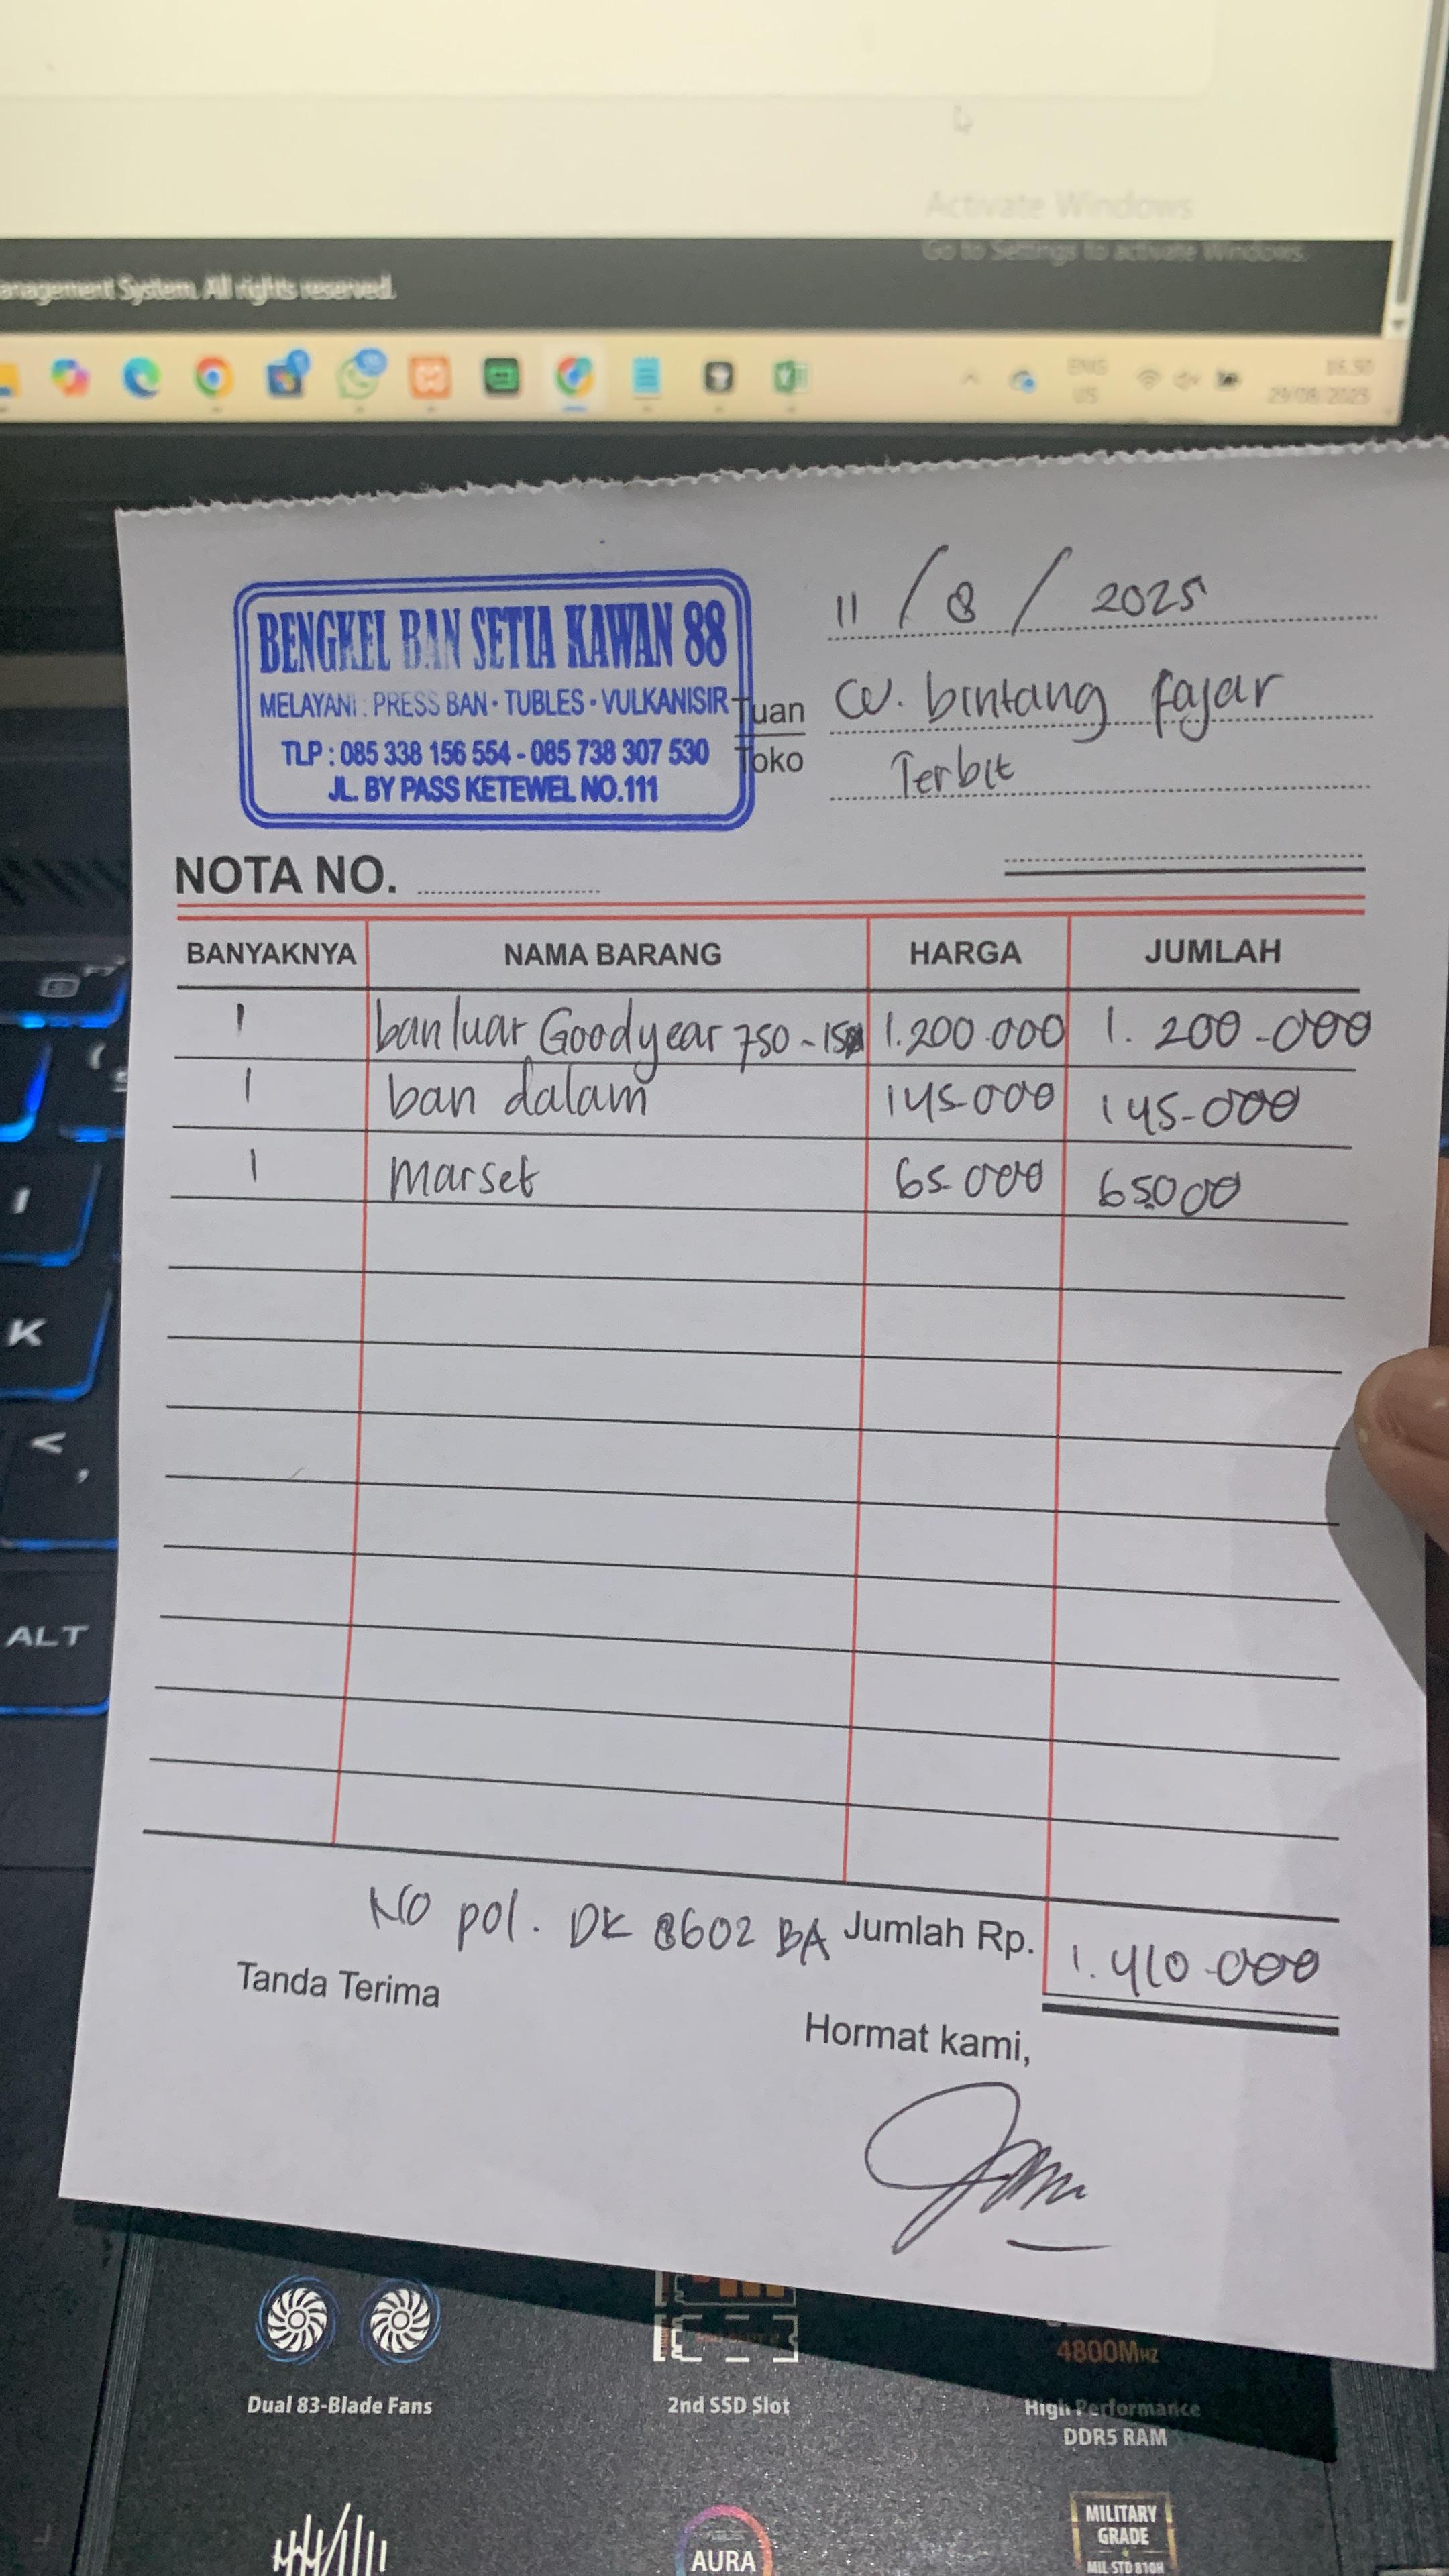 Activate Windows
Go to Settings to activate Windows.
anagement System. All rights reserved.
ENG
US
16.30
29/08/2025
BENGKEL BAN SETIA KAWAN 88
MELAYANI : PRESS BAN - TUBLES - VULKANISIR
TLP : 085 338 156 554 - 085 738 307 530
JL. BY PASS KETEWEL NO.111
11 / 8 / 2025
Tuan
Toko
CV. bintang fajar
Terbit
NOTA NO.
BANYAKNYA NAMA BARANG HARGA JUMLAH
1 ban luar Goodyear 750-15 1.200.000 1.200.000
1 ban dalam 145.000 145.000
1 Marset 65.000 65.000
No pol. DK 8602 BA Jumlah Rp. 1.410.000
Tanda Terima
Hormat kami,
I
K
<
,
ALT
4800MHz
Dual 83-Blade Fans
2nd SSD Slot
High Performance
DDR5 RAM
AURA
MILITARY
GRADE
MIL-STD 810H